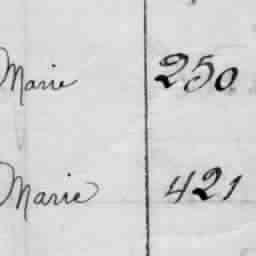 Marie 250
Marie 421